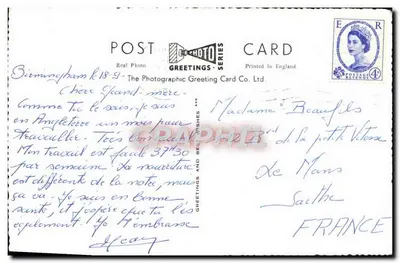 POST CARD
E R
Real Photo
PHOTO
GREETINGS
SERIES
Printed in England
The Photographic Greeting Card Co. Ltd
POSTAGE REVENUE
4D
Birmingham le 18-9-
Chère Grand-mère.
Comme tu le sais je suis
en Angleterre un mois pour
travailler.
Mon travail est facile 37H30
par semaine. La nourriture
est différente de la notre, mais
ça va. Je suis en bonne
santé, et j'espère que tu l'es
également. Je t'embrasse
GREETINGS AND BEST WISHES
Madame Beaufils
de la petite Vitesse
Le Mans
Sarthe
FRANCE